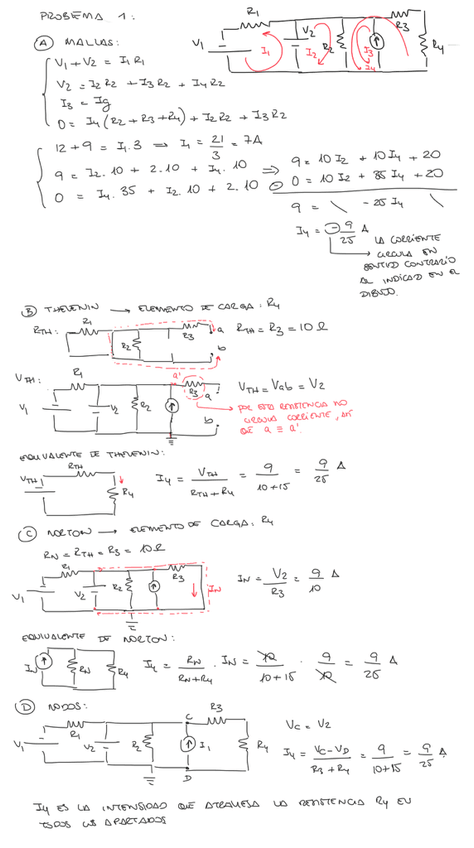 PROBLEMA 1:
R1
R3
(A) MALLAS:
V1
V2
R2
R4
I1
I2
I3
I4
V1 + V2 = I1 R1
V2 = I2 R2 + I3 R2 + I4 R2
I3 = Ig
0 = I4 (R2 + R3 + R4) + I2 R2 + I3 R2
12 + 9 = I1 . 3 ⇒ I1 = 21/3 = 7A
9 = I2 . 10 + 2 . 10 + I4 . 10 ⇒ 9 = 10 I2 + 10 I4 + 20
0 = I4 . 35 + I2 . 10 + 2 . 10 ⊖ 0 = 10 I2 + 35 I4 + 20
9 = \ -25 I4 \
I4 = - 9/25 A
LA CORRIENTE
CIRCULA EN
SENTIDO CONTRARIO
AL INDICADO EN EL
DIBUJO.
(B) THEVENIN → ELEMENTO DE CARGA: R4
RTH:
R1
R2
R3
a
b
RTH = R3 = 10 Ω
VTH:
R1
a'
R3
a
V1
V2
R2
b
VTH = Vab = V2
POR ESTA RESISTENCIA NO
CIRCULA CORRIENTE, ASÍ
QUE a ≡ a'.
EQUIVALENTE DE THEVENIN:
RTH
VTH
R4
I4 = VTH / (RTH + R4) = 9 / (10+15) = 9/25 A
(C) NORTON → ELEMENTO DE CARGA: R4
RN = RTH = R3 = 10 Ω
R1
R3
V1
V2
R2
IN
IN = V2/R3 = 9/10 A
EQUIVALENTE DE NORTON:
IN
RN
R4
I4 = RN / (RN+R4) . IN = 10 / (10+15) . 9/10 = 9/25 A
(D) NODOS:
C
R3
V1
R1
V2
R2
I1
R4
D
VC = V2
I4 = (VC - VD) / (R3 + R4) = 9 / (10+15) = 9/25 A
I4 ES LA INTENSIDAD QUE ATRAVIESA LA RESISTENCIA R4 EN
TODOS LOS APARTADOS